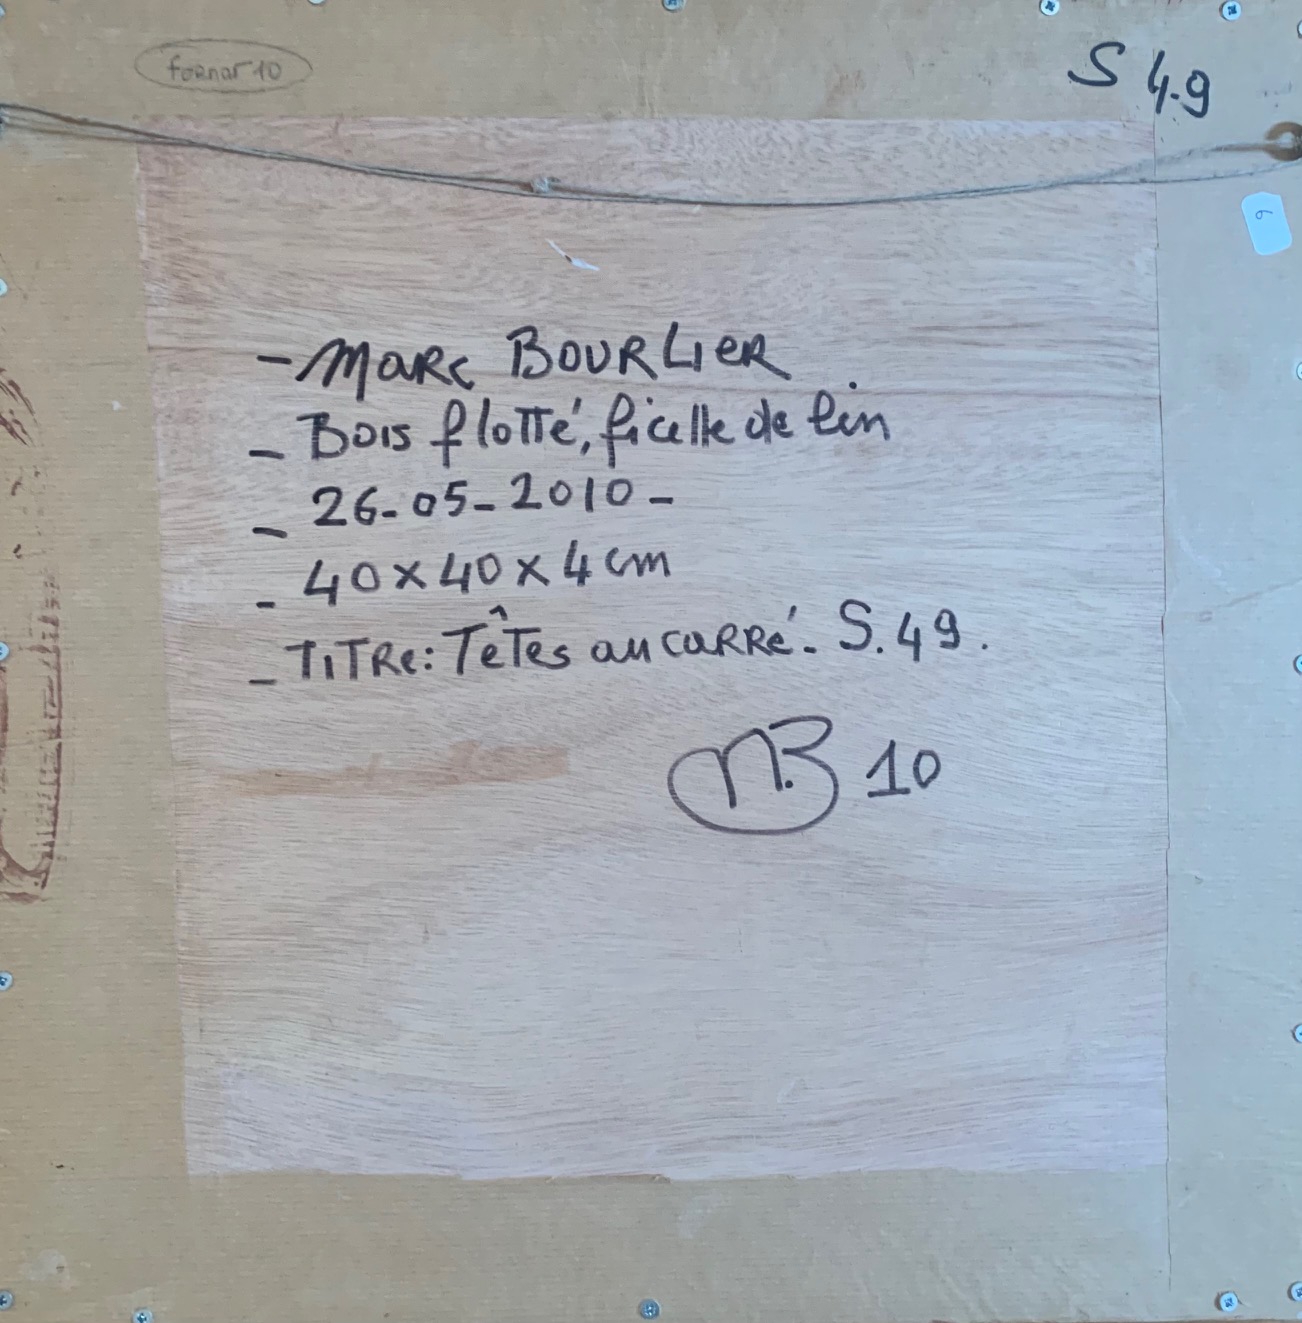 format 10
S 4.9
6
- MARC BOURLIER
- Bois flotté, ficelle de lin
- 26-05-2010-
- 40x40x4cm
- TITRe: TêTes au carré. S.49.
M.B 10